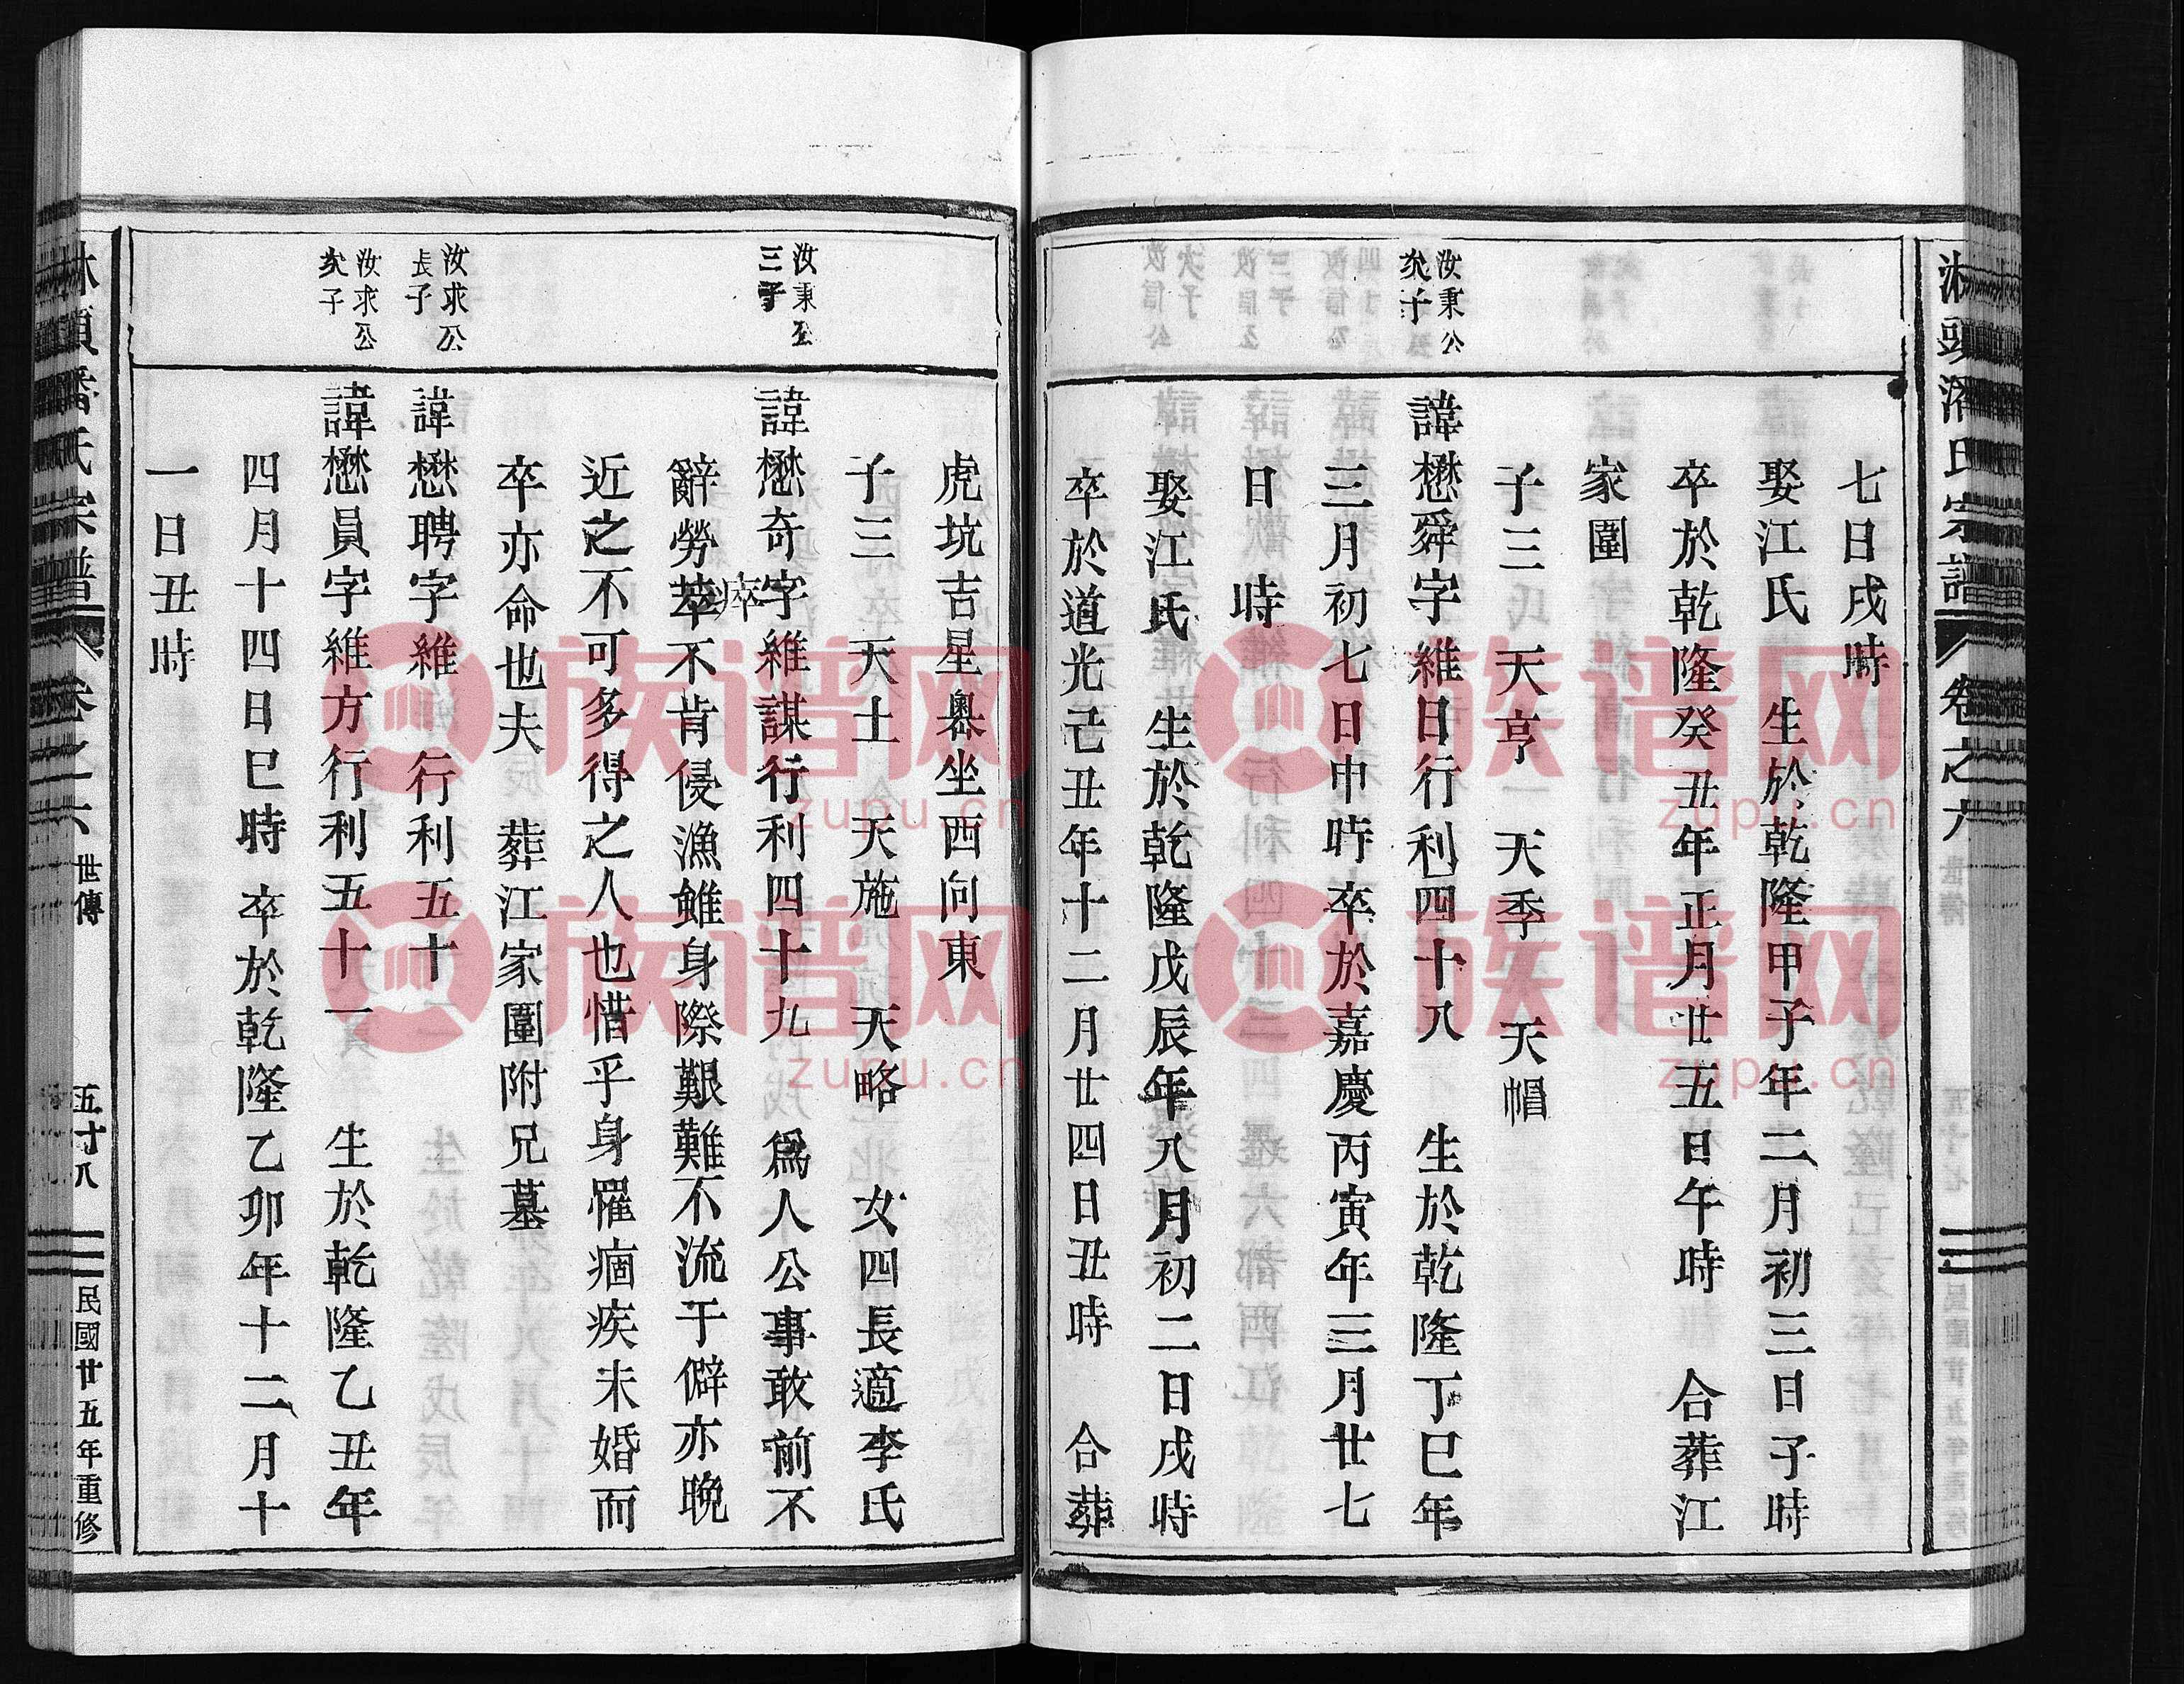 潘氏宗譜 卷之六
七日戌時
娶江氏 生於乾隆甲子年二月初三日子時
卒於乾隆癸丑年正月廿五日午時 合葬江
家圍
子三 天亨 天季 天帽
汝秉公
次子
諱懋舜字維日行利四十八 生於乾隆丁巳年
三月初七日申時卒於嘉慶丙寅年三月廿七
日 時
娶江氏 生於乾隆戊辰年八月初二日戌時
卒於道光己丑年十二月廿四日丑時 合葬
虎坑吉星舉坐西向東
子三 天土 天施 天略 女四長適李氏
汝秉公
三子
諱懋奇字維謀行利四十九 爲人公事敢前不
辭勞萃不肯侵漁雖身際艱難不流于僻亦晚
瘁
近之不可多得之人也惜乎身罹痼疾未婚而
卒亦命也夫 葬江家圍附兄墓
汝求公
長子
諱懋聘字維 行利五十
汝求公
次子
諱懋員字維方行利五十一 生於乾隆乙丑年
四月十四日巳時 卒於乾隆乙卯年十二月十
一日丑時
潘氏宗譜 卷之六 世傳 五十八 民國廿五年重修
族谱网
zupu.cn
族谱网
zupu.cn
族谱网
zupu.cn
族谱网
zupu.cn